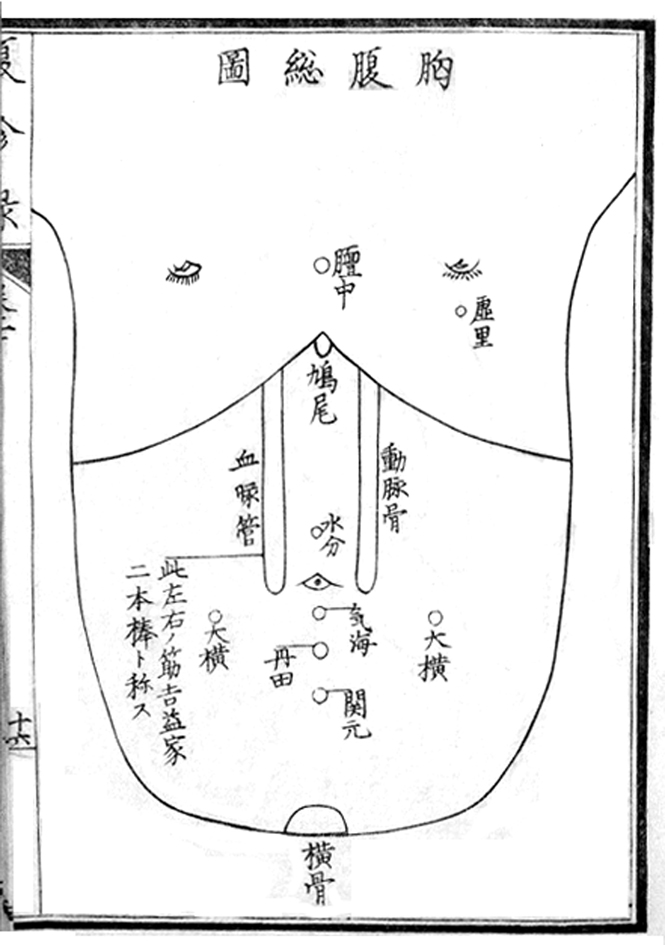 胸腹総圖
膻中
虚里
鳩尾
動脉骨
血脉管
水分
気海
丹田
関元
大横
大横
此左右ノ筋吉益家
二本棒ト称ス
横骨
十六